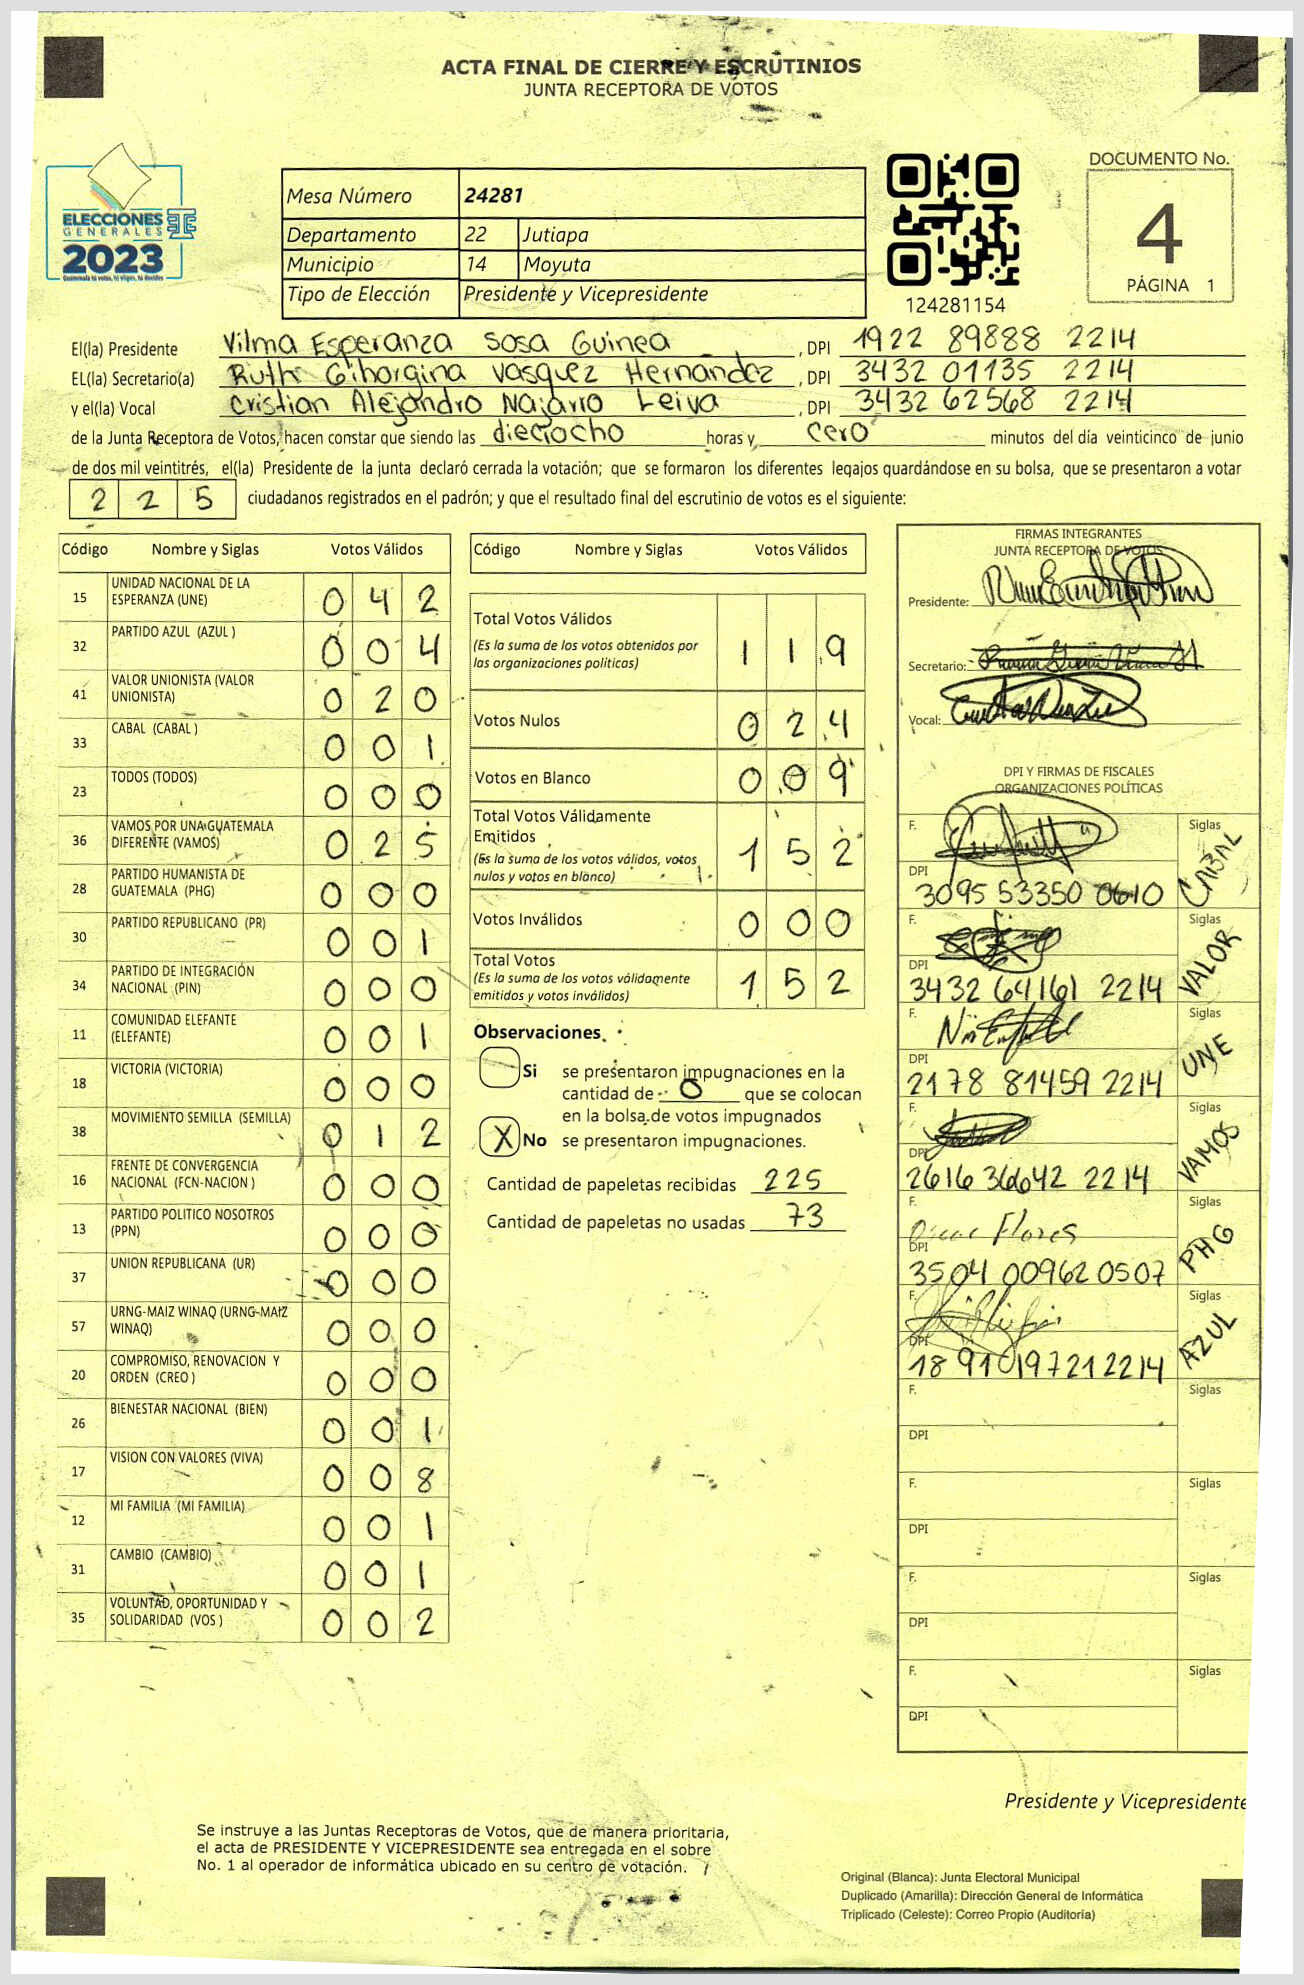 ACTA FINAL DE CIERRE Y ESCRUTINIOS
JUNTA RECEPTORA DE VOTOS
ELECCIONES
GENERALES
2023
Mesa Número 24281
Departamento 22 Jutiapa
Municipio 14 Moyuta
Tipo de Elección Presidente y Vicepresidente
124281154
DOCUMENTO No.
4
PÁGINA 1
El(la) Presidente Vilma Esperanza Sosa Guinea, DPI 1922 89888 2214
EL(la) Secretario(a) Ruth Gihorgina Vasquez Hernandez, DPI 3432 01135 2214
y el(la) Vocal Cristian Alejandro Najarro Leiva, DPI 3432 62568 2214
de la Junta Receptora de Votos, hacen constar que siendo las dieciocho horas y cero minutos del día veinticinco de junio
de dos mil veintitrés, el(la) Presidente de la junta declaró cerrada la votación; que se formaron los diferentes legajos guardándose en su bolsa, que se presentaron a votar
225 ciudadanos registrados en el padrón; y que el resultado final del escrutinio de votos es el siguiente:
Código Nombre y Siglas Votos Válidos
15 UNIDAD NACIONAL DE LA ESPERANZA (UNE) 0 4 2
32 PARTIDO AZUL (AZUL ) 0 0 4
41 VALOR UNIONISTA (VALOR UNIONISTA) 0 2 0
33 CABAL (CABAL ) 0 0 1
23 TODOS (TODOS) 0 0 0
36 VAMOS POR UNA GUATEMALA DIFERENTE (VAMOS) 0 2 5
28 PARTIDO HUMANISTA DE GUATEMALA (PHG) 0 0 0
30 PARTIDO REPUBLICANO (PR) 0 0 1
34 PARTIDO DE INTEGRACIÓN NACIONAL (PIN) 0 0 0
11 COMUNIDAD ELEFANTE (ELEFANTE) 0 0 1
18 VICTORIA (VICTORIA) 0 0 0
38 MOVIMIENTO SEMILLA (SEMILLA) 0 1 2
16 FRENTE DE CONVERGENCIA NACIONAL (FCN-NACION ) 0 0 0
13 PARTIDO POLITICO NOSOTROS (PPN) 0 0 0
37 UNION REPUBLICANA (UR) 0 0 0
57 URNG-MAIZ WINAQ (URNG-MAIZ WINAQ) 0 0 0
20 COMPROMISO, RENOVACION Y ORDEN (CREO ) 0 0 0
26 BIENESTAR NACIONAL (BIEN) 0 0 1
17 VISION CON VALORES (VIVA) 0 0 8
12 MI FAMILIA (MI FAMILIA) 0 0 1
31 CAMBIO (CAMBIO) 0 0 1
35 VOLUNTAD, OPORTUNIDAD Y SOLIDARIDAD (VOS ) 0 0 2
Código Nombre y Siglas Votos Válidos
Total Votos Válidos
(Es la suma de los votos obtenidos por
las organizaciones políticas) 1 1 9
Votos Nulos 0 2 4
Votos en Blanco 0 0 9
Total Votos Válidamente
Emitidos
(Es la suma de los votos válidos, votos
nulos y votos en blanco) 1 5 2
Votos Inválidos 0 0 0
Total Votos
(Es la suma de los votos válidamente
emitidos y votos inválidos) 1 5 2
Observaciones
Si se presentaron impugnaciones en la
cantidad de 0 que se colocan
en la bolsa de votos impugnados
X No se presentaron impugnaciones.
Cantidad de papeletas recibidas 225
Cantidad de papeletas no usadas 73
FIRMAS INTEGRANTES
JUNTA RECEPTORA DE VOTOS
Presidente:
Secretario:
Vocal:
DPI Y FIRMAS DE FISCALES
ORGANIZACIONES POLÍTICAS
F. Siglas CABAL
DPI 3095 53350 0610
F. Siglas VALOR
DPI 3432 64161 2214
F. Siglas UNE
DPI 2178 81459 2214
F. Siglas VAMOS
DPI 2616 36642 2214
F. Flores Siglas PHG
DPI 3504 00962 0507
F. Siglas AZUL
DPI 1891 01972 2214
F. Siglas
DPI
F. Siglas
DPI
F. Siglas
DPI
F. Siglas
DPI
Presidente y Vicepresidente
Se instruye a las Juntas Receptoras de Votos, que de manera prioritaria,
el acta de PRESIDENTE Y VICEPRESIDENTE sea entregada en el sobre
No. 1 al operador de informática ubicado en su centro de votación.
Original (Blanca): Junta Electoral Municipal
Duplicado (Amarilla): Dirección General de Informática
Triplicado (Celeste): Correo Propio (Auditoría)